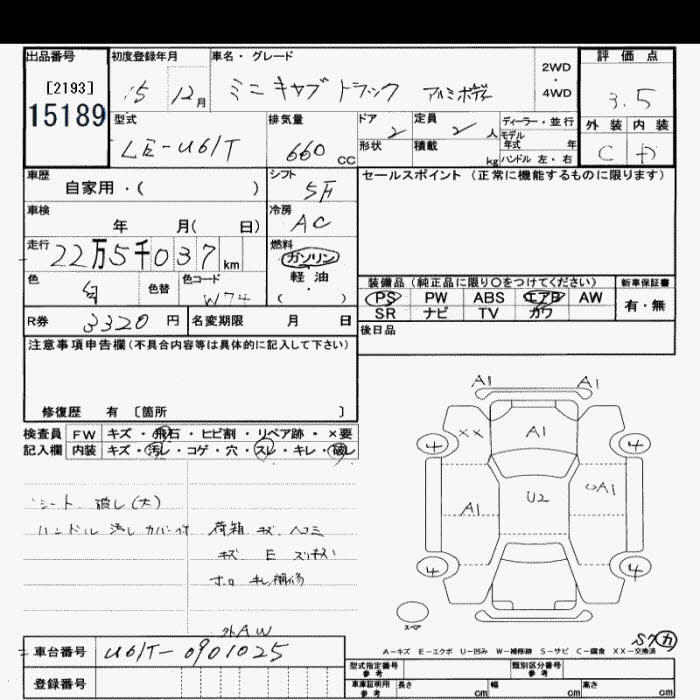 出品番号 初度登録年月 車名・グレード 評価点
[2193] 15189
15 12月 ミニキャブトラック 2WD・4WD 3.5
型式 排気量 ドア 定員 ディーラー・並行 外装 内装
LE-U61T 660 CC 2 2人 モデル年式 年 C D
形状 積載 kg ハンドル 左・右
車歴 シフト セールスポイント(正常に機能するものに限ります)
自家用・( ) 5F
車検 冷房
年 月( 日) AC
走行 22万5千037km 燃料 ガソリン
軽油
( )
色 色替 色コード W74
装備品(純正品に限り○をつけてください) 新車保証書
PS PW ABS エアB AW 有・無
SR ナビ TV カワ
R券 3320円 名変期限 月 日 後日品
注意事項申告欄(不具合内容等は具体的に記入して下さい)
修復歴 有 [箇所 ]
検査員 FW キズ・飛石・ヒビ割・リペア跡・×要
記入欄 内装 キズ・汚レ・コゲ・穴・スレ・キレ・破レ
シート 破レ(大)
ハンドル 汚レ カバー付 荷箱 キズ ヘコミ
キズ E
ホロ キレ補修
外AW
A1 A1
4 XX A1 4
A1 U2 A1
4 4
スペア
S7 カ
A-キズ E-エクボ U-凹み W-補修跡 S-サビ C-腐食 XX-交換済
車台番号 U61T-0901025
型式指定番号 参考 類別区分番号 参考
登録番号
車庫証明用 参考 長さ cm 幅 cm 高さ cm